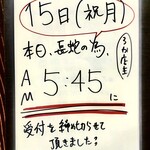 15日(祝月)
本日、長蛇の為、
AM 5:45 に
受付を締め切らせて
頂きました。